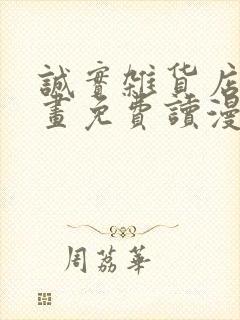 誠實雜貨店
畫免費讀漫
周荔華